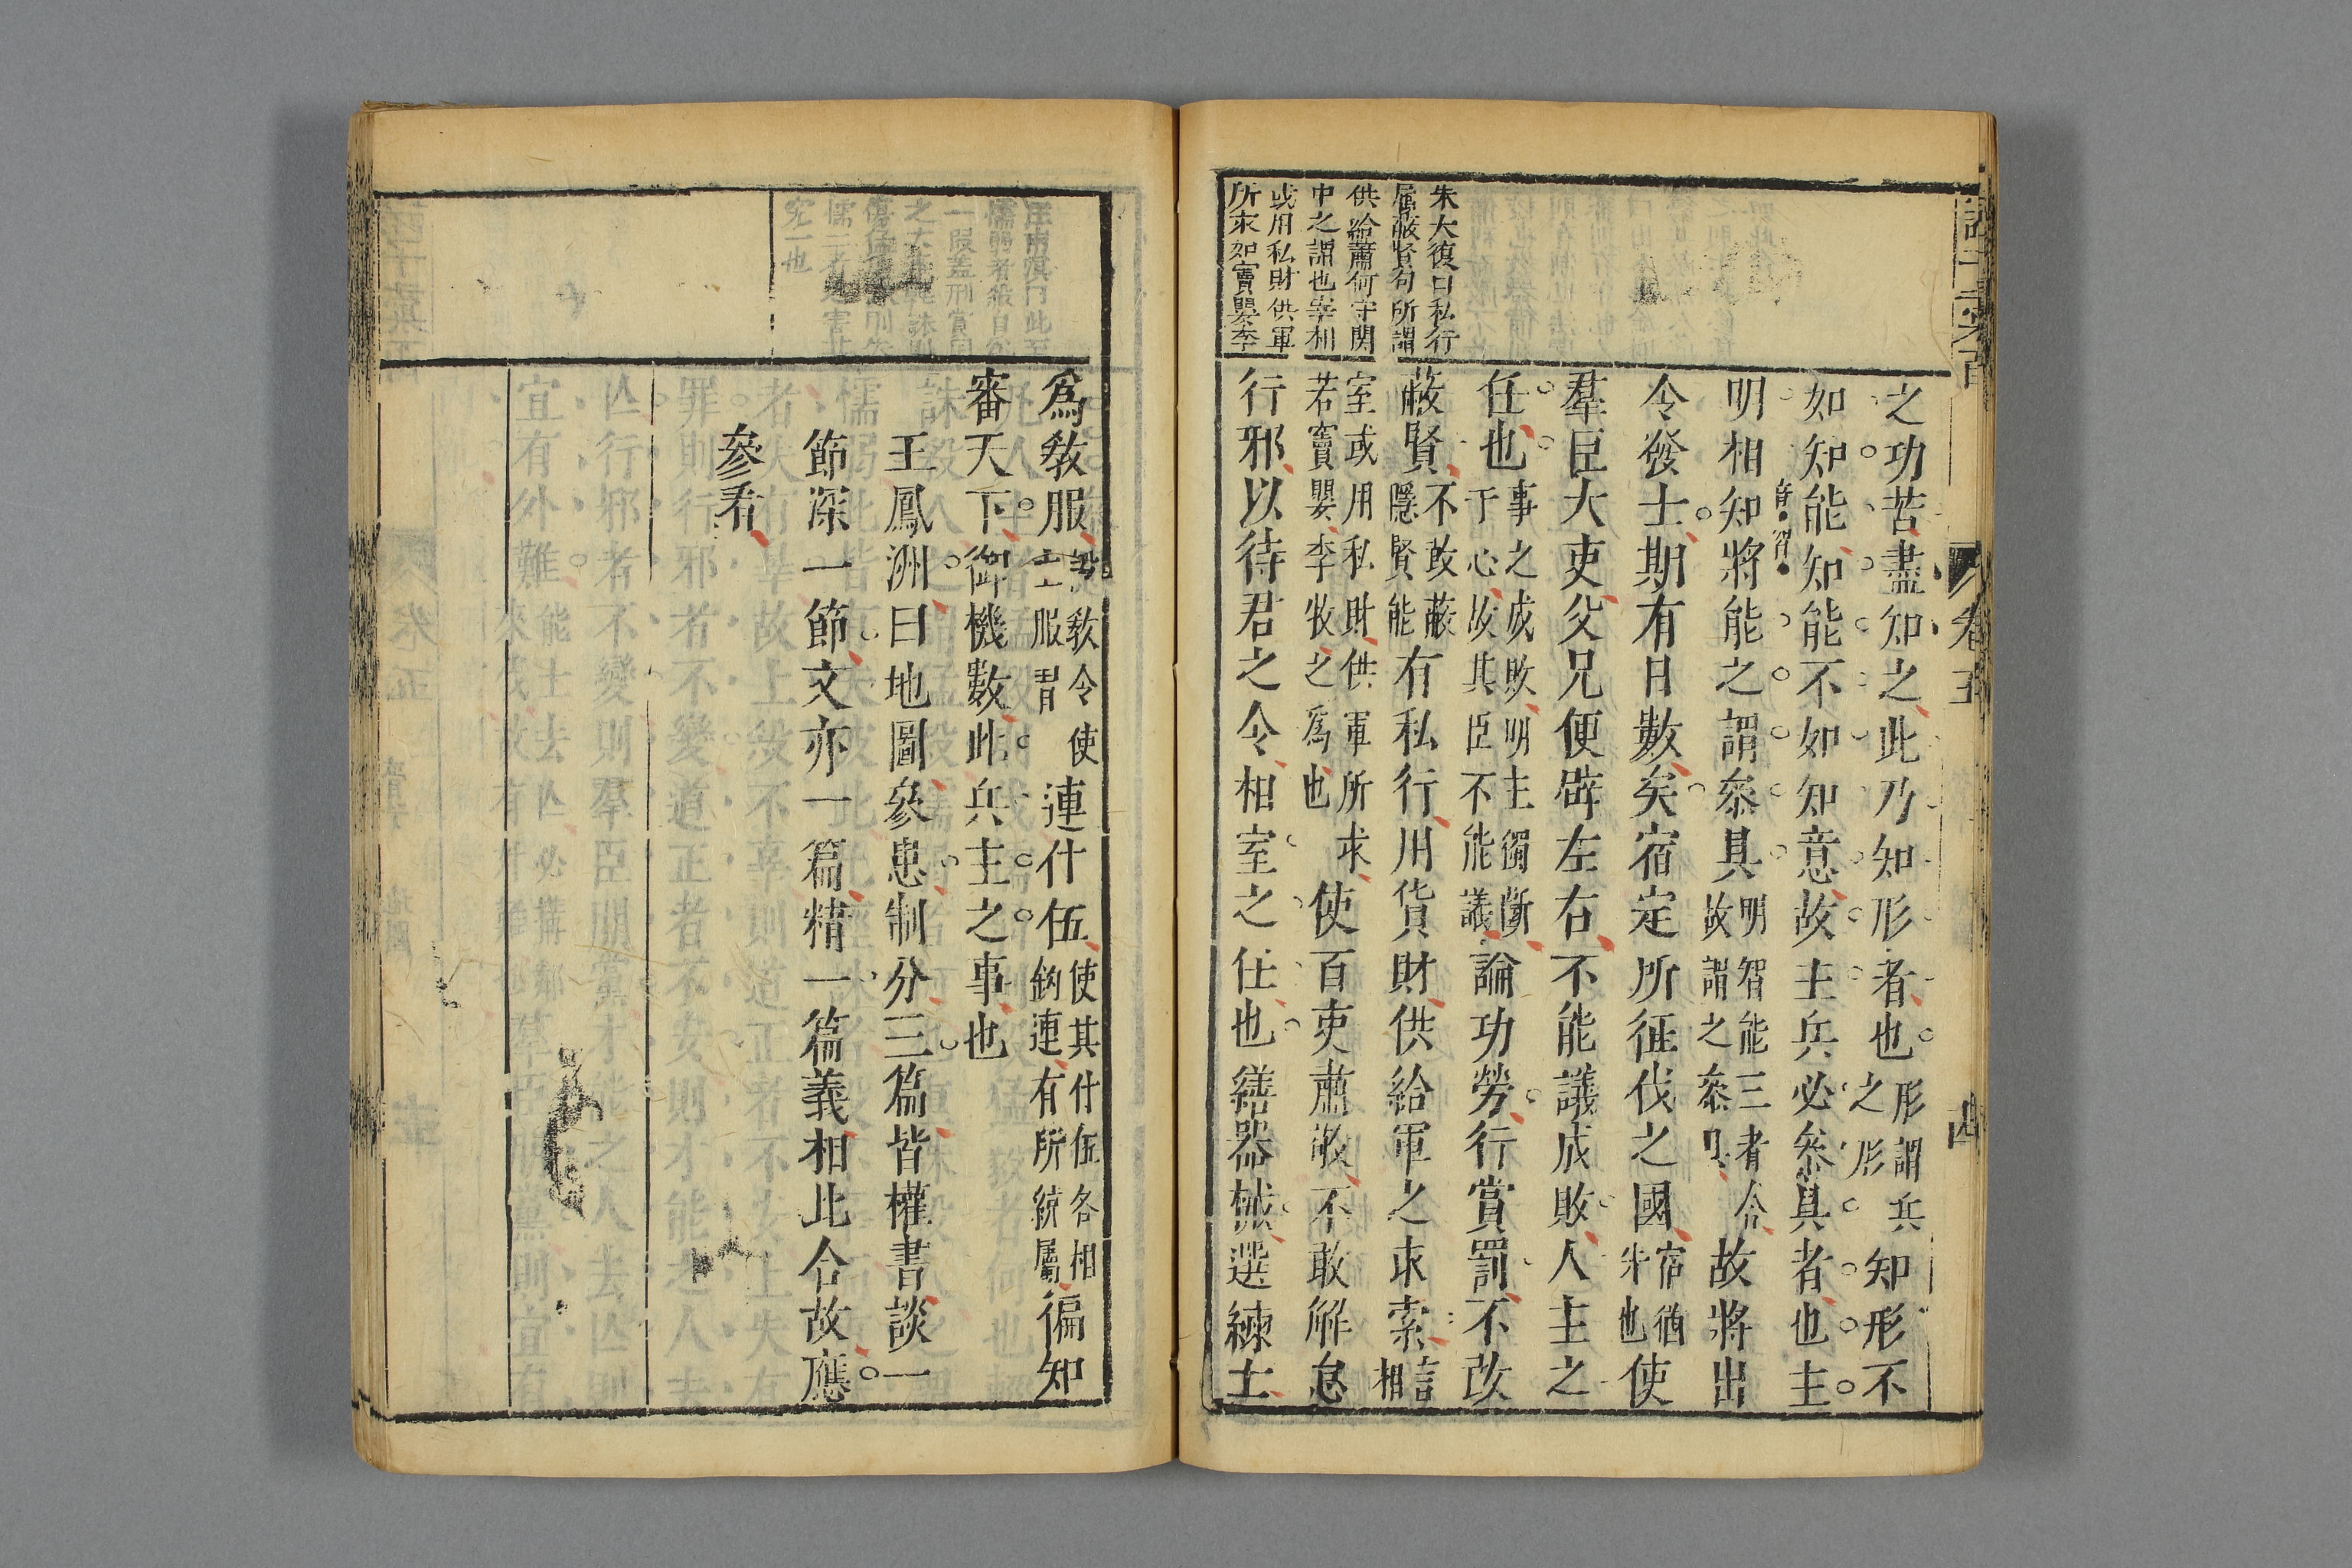 卷五
之功苦盡知之此乃知形者也形謂兵之形知形不
如知能知能不如知意故主兵必參具者也主
明相知將能之謂參具明智能三者合故謂之參具故將出
音智
令發士期有日數矣宿定所征伐之國宿猶先也使
羣臣大吏父兄便辟左右不能議成敗人主之
任也事之成敗明主獨斷于心故其臣不能議論功勞行賞罰不敢
蔽賢不敢蔽隱賢能有私行用貨財供給軍之求索言相
室或用私財供軍所求若竇嬰李牧之爲也使百吏肅敬不敢解怠
行邪以待君之令相室之任也繕器械選練士
朱大復曰私行
屬蔽賢句所謂
供給蕭何守関
中之謂也宰相
或用私財供軍
所求如竇嬰李
爲教服設教令使士服習連什伍使其什伍各相鉤連有所統屬徧知
審天下御機數此兵主之事也
王鳳洲曰地圖參患制分三篇皆權書談一
節深一節文亦一篇精一篇義相比合故應
參看